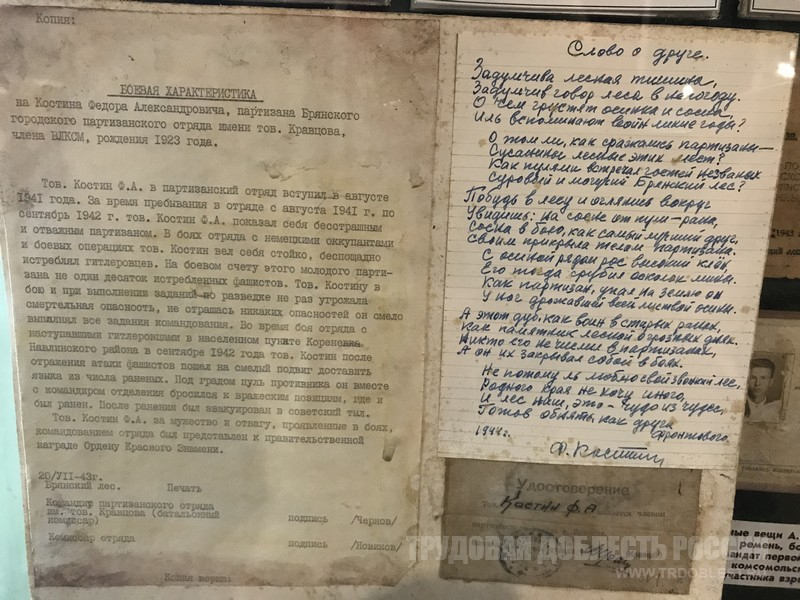 Копия:
БОЕВАЯ ХАРАКТЕРИСТИКА
на Костина Федора Александровича, партизана Брянского
городского партизанского отряда имени тов. Кравцова,
члена ВЛКСМ, рождения 1923 года.
Тов. Костин Ф.А. в партизанский отряд вступил в августе
1941 года. За время пребывания в отряде с августа 1941 г. по
сентябрь 1942 г. тов. Костин Ф.А. показал себя бесстрашным
и отважным партизаном. В боях отряда с немецкими оккупантами
и боевых операциях тов. Костин вел себя стойко, беспощадно
истреблял гитлеровцев. На боевом счету этого молодого парти-
зана не один десяток истребленных фашистов. Тов. Костину в
бою и при выполнении заданий по разведке не раз угрожала
смертельная опасность, не страшась никаких опасностей он смело
выполнял все задания командования. Во время боя отряда с
наступавшими гитлеровцами в населенном пункте Кореневка
Навлинского района в сентябре 1942 года тов. Костин после
отражения атаки фашистов пошел на смелый подвиг доставить
языка из числа раненых. Под градом пуль противника он вместе
с командиром отделения бросился к вражеским позициям, где и
был ранен. После ранения был эвакуирован в советский тыл.
Тов. Костин Ф.А. за мужество и отвагу, проявленные в боях,
командованием отряда был представлен к правительственной
награде Ордену Красного Знамени.
20/VII-43г.
Брянский лес. Печать
Командир партизанского отряда
им. тов. Кравцова (батальонный
комиссар) подпись /Чернов/
Комиссар отряда подпись /Новиков/
Копия верна:
Слово о друге.
Задумчива лесная тишина,
Задумчив говор леса в непогоду.
О чем грустят осинка и сосна,
Иль вспоминают войн лихие годы?
О том ли, как сражались партизаны —
Сусанины лесные этих мест?
Как пулями встречал гостей незваных
Суровый и могучий Брянский лес?
Побудь в лесу и оглянись вокруг
Увидишь: на сосне от пули – рана,
Сосна в бою, как самый лучший друг,
Своим прикрыла телом партизана.
С осиной рядом рос высокий клён,
Его тогда срубил осколок мины.
Как партизан, упал на землю он
У ног дрожавшей всей листвой осины.
А этот дуб, как воин в старых ранах,
Как памятник лесной о грозных днях.
Никто его не числил в партизанах,
А он их закрывал собой в боях.
Не потому ль люблю свой звонкий лес,
Родного края не хочу иного,
И лес наш, это – чудо из чудес,
Готов обнять, как друга
фронтового.
1944г.
Ф. Костин
Удостоверение
Костин Ф.А
ТРУДОВАЯ ДОБЛЕСТЬ РОСС
WWW.TRDOBLE
ные вещи А.
ремень, бо
андат первог
комсомольс
частника взры